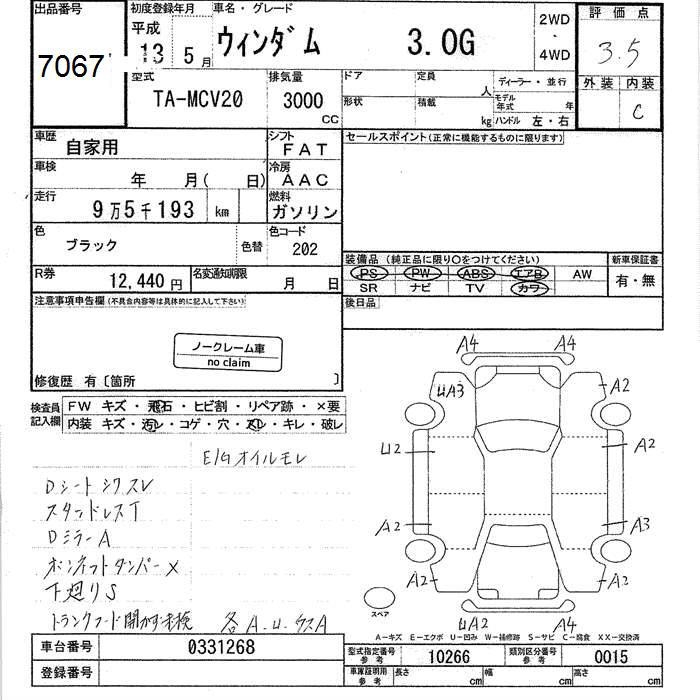 出品番号 初度登録年月 車名・グレード 2WD・4WD 評価点
7067 平成13 5月 ウィンダム 3.0G 3.5
型式 排気量 ドア 定員 人 ディーラー・並行 外装 内装
TA-MCV20 3000 CC 形状 積載 kg モデル年式 年 ハンドル 左・右 C
車歴 自家用 シフト FAT セールスポイント(正常に機能するものに限ります)
車検 年 月( 日) 冷房 AAC
走行 9万5千193 km 燃料 ガソリン
色 ブラック 色替 色コード 202
装備品(純正品に限り○をつけてください) 新車保証書
R券 12,440円 名変通知期限 月 日 PS PW ABS エアB AW 有・無
SR ナビ TV カワ
注意事項申告欄(不具合内容等は具体的に記入して下さい) 後日品
ノークレーム車
no claim
修復歴 有〔箇所 〕
検査員記入欄 FW キズ・飛石・ヒビ割・リペア跡・×要
内装 キズ・汚レ・コゲ・穴・スレ・キレ・破レ
E/Gオイルモレ
Dシートシワスレ
スタッドレスT
DミラーA
ボンネットダンパー×
下廻りS
トランクフード開かず未検 各A.U.
A4 A4
UA3 A2
U2 A2
A2 A3
A2 A2
UA2 A4
スペア
A-キズ E-エクボ U-凹み W-補修跡 S-サビ C-腐食 XX-交換済
車台番号 0331268 型式指定番号 参考 10266 類別区分番号 参考 0015
登録番号 車庫証明用 参考 長さ cm 幅 cm 高さ cm